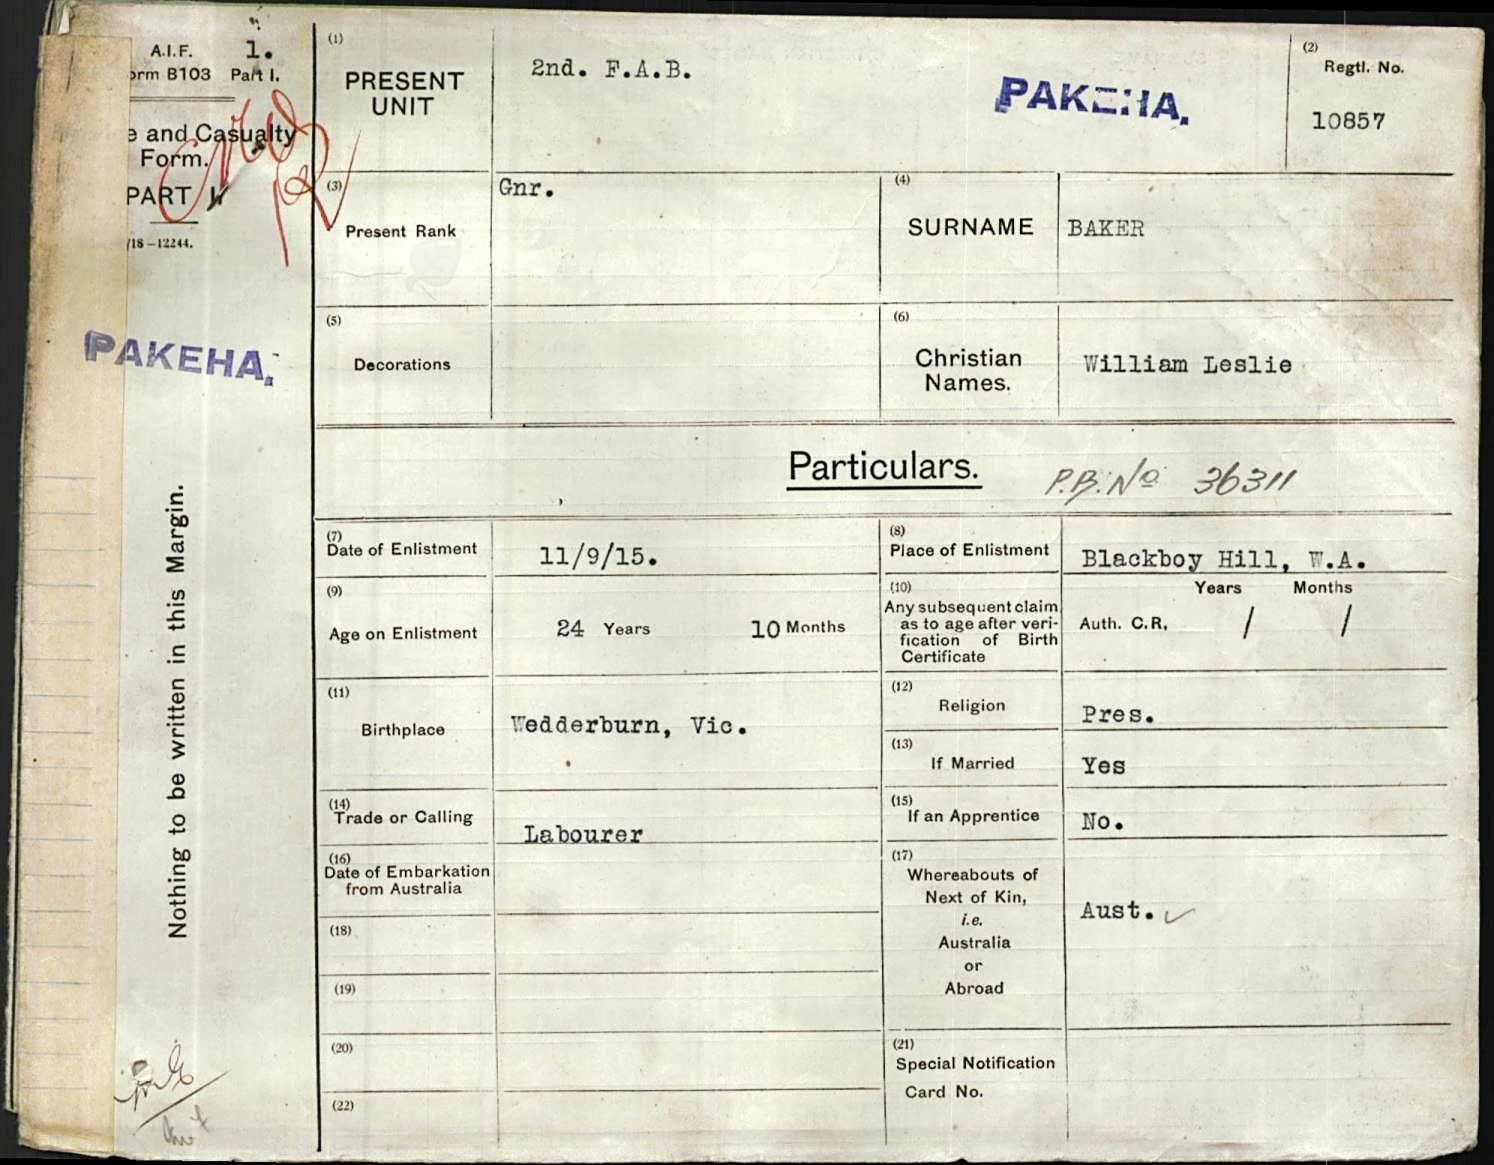 A.I.F. 1.
orm B103 Part I.
e and Casualty
Form.
PART
/18 –12244.
PAKEHA.
Nothing to be written in this Margin.
(1)
PRESENT
UNIT
2nd. F.A.B.
PAKEHA.
(2)
Regtl. No.
10857
(3)
Present Rank
Gnr.
(4)
SURNAME
BAKER
(5)
Decorations
(6)
Christian
Names.
William Leslie
Particulars.
P.B. No 36311
(7)
Date of Enlistment
11/9/15.
(8)
Place of Enlistment
Blackboy Hill, W.A.
(9)
Age on Enlistment
24 Years 10 Months
(10)
Any subsequent claim
as to age after veri-
fication of Birth
Certificate
Years Months
Auth. C.R, / /
(11)
Birthplace
Wedderburn, Vic.
(12)
Religion
Pres.
(13)
If Married
Yes
(14)
Trade or Calling
Labourer
(15)
If an Apprentice
No.
(16)
Date of Embarkation
from Australia
(17)
Whereabouts of
Next of Kin,
i.e.
Australia
or
Abroad
Aust.
(18)
(19)
(20)
(21)
Special Notification
Card No.
(22)